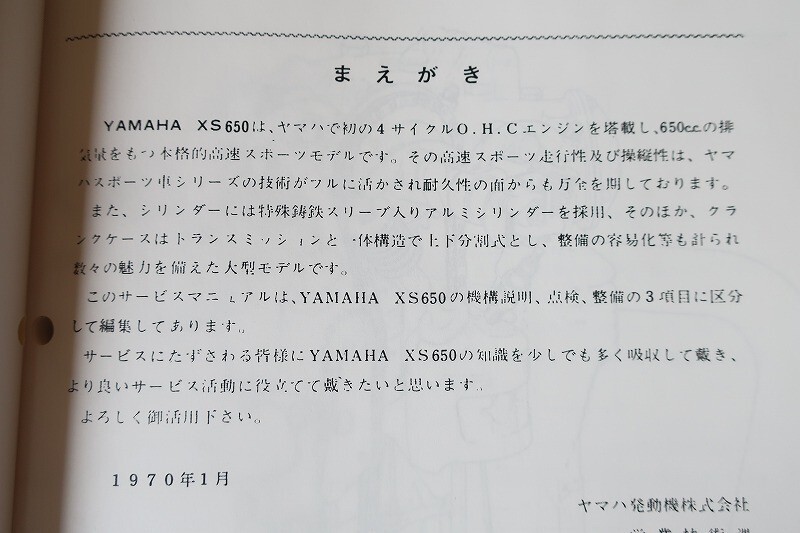 まえがき
YAMAHA XS650は、ヤマハで初の4サイクルO.H.Cエンジンを塔載し、650ccの排
気量をもつ本格的高速スポーツモデルです。その高速スポーツ走行性及び操縦性は、ヤマ
ハスポーツ車シリーズの技術がフルに活かされ耐久性の面からも万全を期しております。
また、シリンダーには特殊鋳鉄スリーブ入りアルミシリンダーを採用、そのほか、クラ
ンクケースはトランスミッションと一体構造で上下分割式とし、整備の容易化等も計られ
数々の魅力を備えた大型モデルです。
このサービスマニュアルは、YAMAHA XS650の機構説明、点検、整備の3項目に区分
して編集してあります。
サービスにたずさわる皆様にYAMAHA XS650の知識を少しでも多く吸収して戴き、
より良いサービス活動に役立てて戴きたいと思います。
よろしく御活用下さい。
1970年1月
ヤマハ発動機株式会社